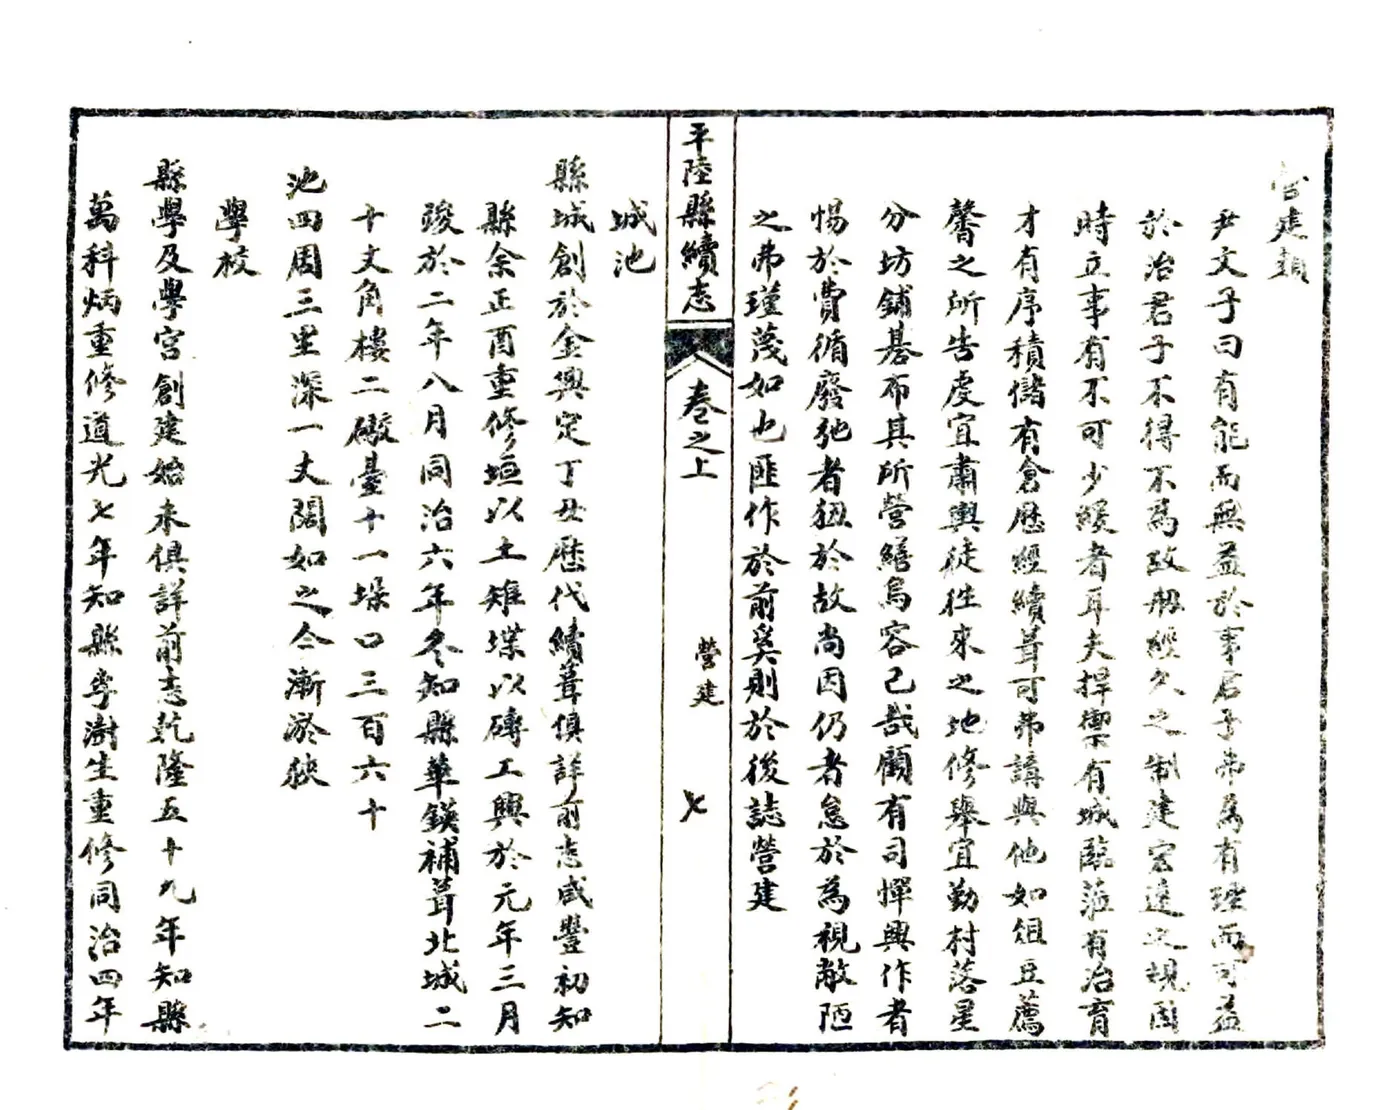 營建類
尹文子曰有能而無益於事君子弗為有理而可益
於治君子不得不為故毅經久之制建宏遠之規因
時立事有不可少緩者耳夫捍禦有城臨蒞有治育
才有序積儲有倉歷經續葺可弗講與他如俎豆薦
馨之所告虔宜肅輿徒往來之地修舉宜勤村落星
分坊鋪棊布其所營繕烏容已哉顧有司憚興作者
惕於費循廢弛者狃於故尚因仍者怠於為視敝陋
之弗墐茂如也匪作於前奚則於後誌營建
平陸縣續志
卷之上
營建
七
城池
縣城創於金興定丁丑歷代續葺俱詳前志咸豐初知
縣余正酉重修垣以土雉堞以磚工興於元年三月
竣於二年八月同治六年冬知縣華鍈補葺北城二
十丈角樓二礮臺十一垛口三百六十
池四周三里深一丈闊如之今漸淤狹
學校
縣學及學宮創建始末俱詳前志乾隆五十九年知縣
萬科炳重修道光七年知縣李澍生重修同治四年